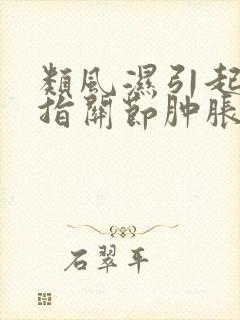 類風濕引起
指關節肿脹
石翠平